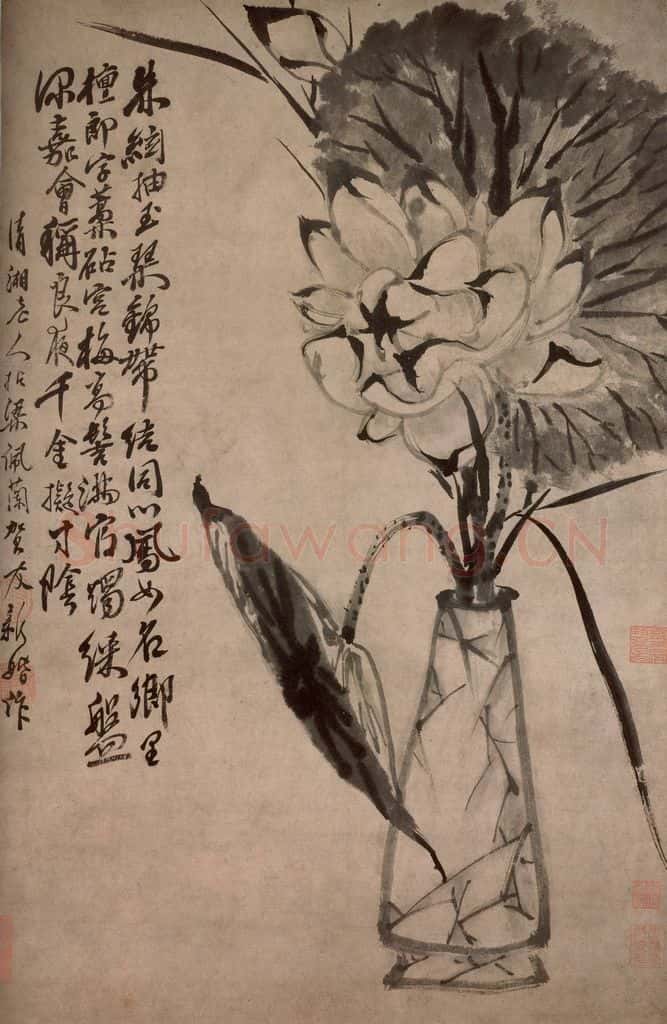 朱絃抽玉琴錦帶結同心鳳女名鄉里
檀郎字藁砧宮梅高髻滿官燭綵盤
深嘉會稱良夜千金擬寸陰
清湘老人拈梁佩蘭賀友新婚作
shufawang.CN